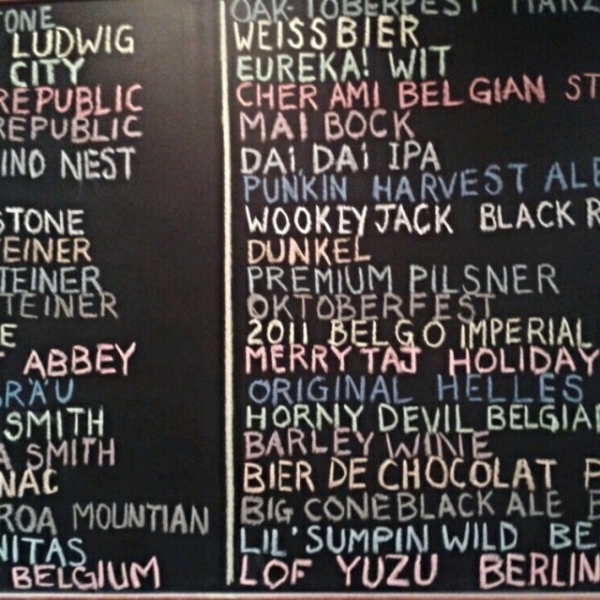 TONE OAK-TOBERFEST MARZ
LUDWIG WEISSBIER
CITY EUREKA! WIT
REPUBLIC CHER AMI BELGIAN ST
REPUBLIC MAI BOCK
INO NEST DAI, DAI IPA
PUNKIN HARVEST ALE
STONE WOOKEYJACK BLACK R
EINER DUNKEL
TEINER PREMIUM PILSNER
TEINER OKTOBERFEST
E 2011 BELGO IMPERIAL
T ABBEY MERRY TAJ HOLIDAY
BRÄU ORIGINAL HELLES
SMITH HORNY DEVIL BELGIAN
A SMITH BARLEY WINE
NAC BIER DE CHOCOLAT P
ROA MOUNTIAN BIG CONE BLACK ALE B
NITAS LIL' SUMPIN WILD BE
BELGIUM LOF YUZU BERLIN